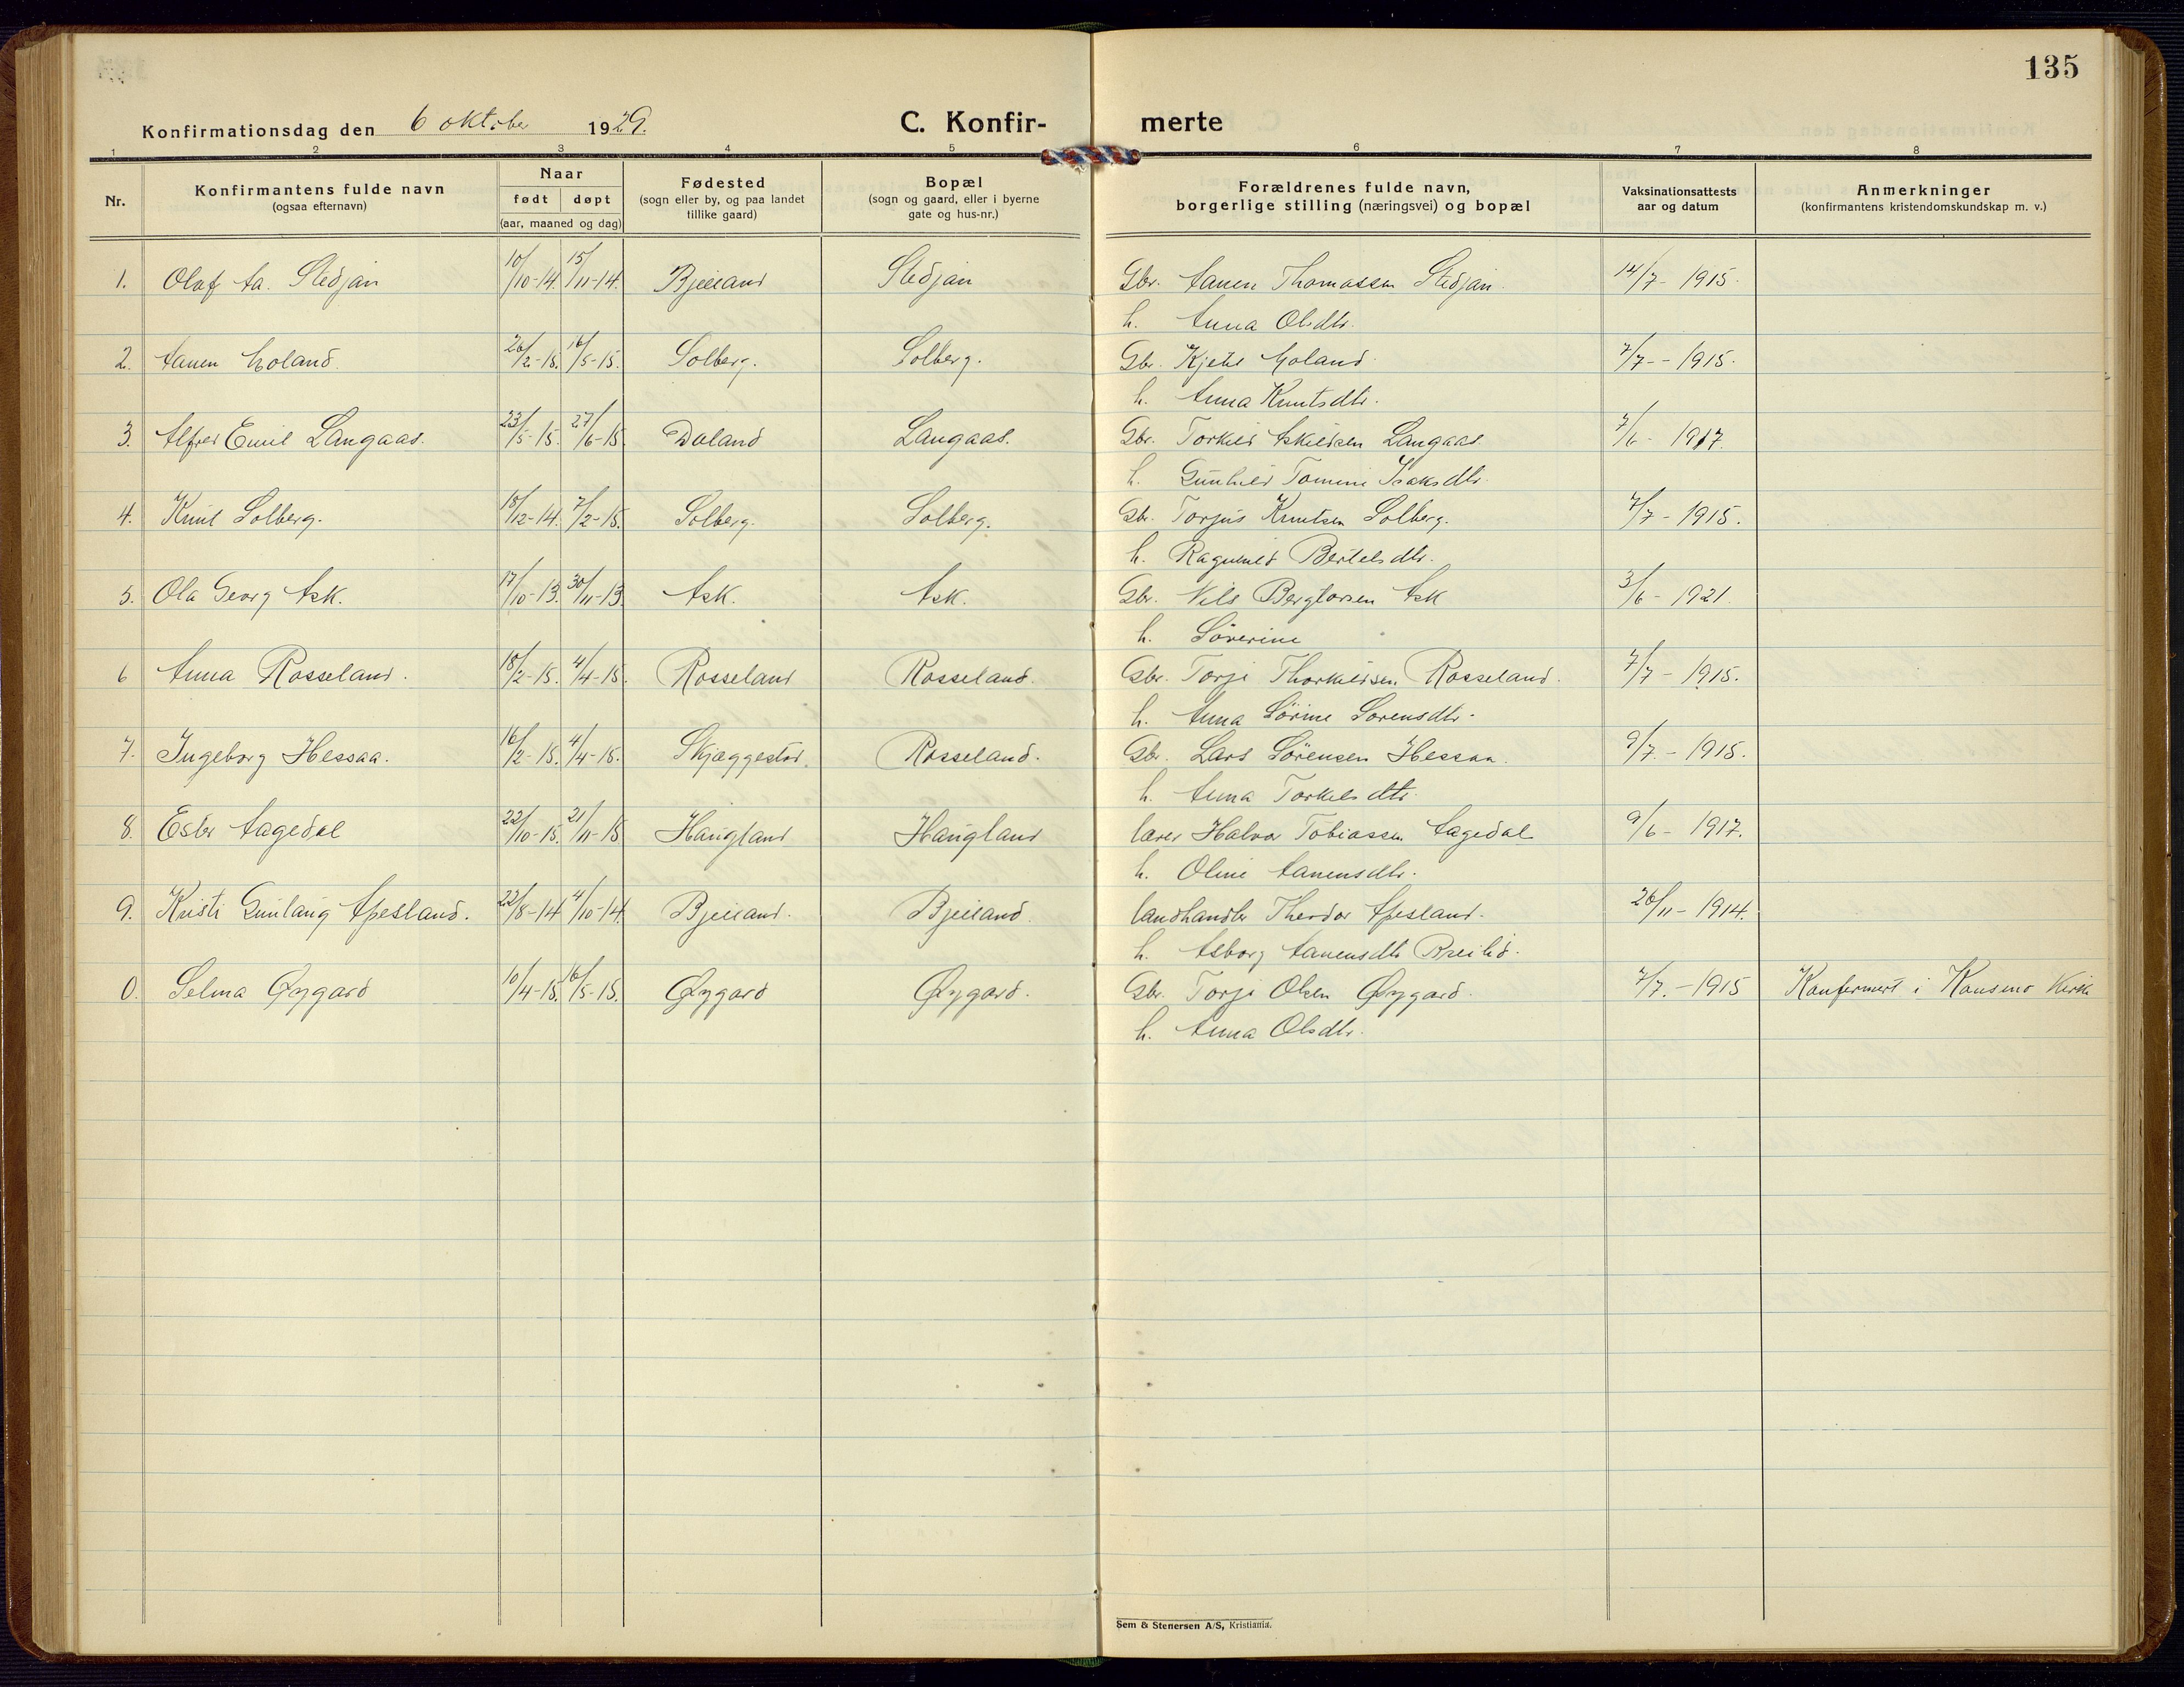 135
Konfirmationsdag den 6 oktober 1929. C. Konfir- merte
1 2 3 4 5 6 7 8
Nr. Konfirmantens fulde navn (ogsaa efternavn) Naar født døpt (aar, maaned og dag) Fødested (sogn eller by, og paa landet tillike gaard) Bopæl (sogn og gaard, eller i byerne gate og hus-nr.) Forældrenes fulde navn, borgerlige stilling (næringsvei) og bopæl Vaksinationsattests aar og datum Anmerkninger (konfirmantens kristendomskundskap m. v.)
1. Olaf Aa. Stedjan 10/10-14. 15/11-14. Bjelland Stedjan Gbr. Aanen Thomassen Stedjan. 14/7- 1915.
h. Anna Olsdtr.
2. AanenHoland. 26/2-15. 16/5-15. Solberg. Solberg. Gbr. Kjetil Holand. 7/7-- 1915.
h. Anna Knutsdtr.
3. Alfred Emil Langaas. 23/5-15. 27/6-15. Daland Langaas. Gbr. Torkild Askildsen Langaas. 7/6- 1917.
h. Gunhild Tomine Isaksdtr.
4. Knut Solberg. 18/12-14. 7/2-15. Solberg. Solberg. Gbr. Torjus Knutsen Solberg. 7/7- 1915.
h. Ragnhild Bertelsdtr.
5. Ola Georg Ask. 17/10-13. 30/11-13. Ask. Ask. Gbr. Nils Bergtorsen Ask 3/6- 1921.
h. Sörerine
6 Anna Rosseland. 18/2-15. 4/4-15. Rosseland Rosseland. Gbr. Torje Thorkildsen Rosseland. 7/7- 1915.
h. Anna Sörine Sorensdtr.
7. Ingeborg Hessaa. 16/2-15. 4/4-15. Skjæggestad. Rosseland. Gbr. Lars Sörensen Hessaa. 9/7- 1915.
h. Anna Torkelsdtr.
8. Ester Aagedal 22/10-15. 21/11-15 Haugland Haugland lærer Halvor Tobiassen Aagedal 9/6- 1917.
h. Oline Aanensdtr.
9. Kristi Gunlaug Apesland. 22/8-14 4/10-14. Bjelland. Bjelland. landhandler Theodor Apesland. 26/11- 1914.
h. Asborg Aanensdtr Breilid.
0. Selma Øygard 10/4-15. 16/5-15. Øygard Øygard. Gbr. Torje Olsen Øygard. 7/7.-1915 Konfermert i Konsmo Kirke
h. Anna Olsdtr.
Sem & Stenersen A/S, Kristiania.